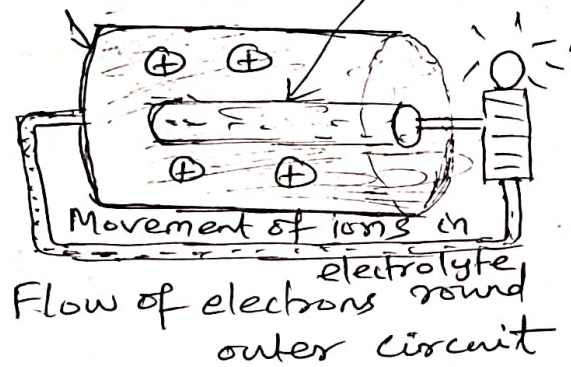 Movement of ions in
electrolyte
Flow of electrons round
outer circuit